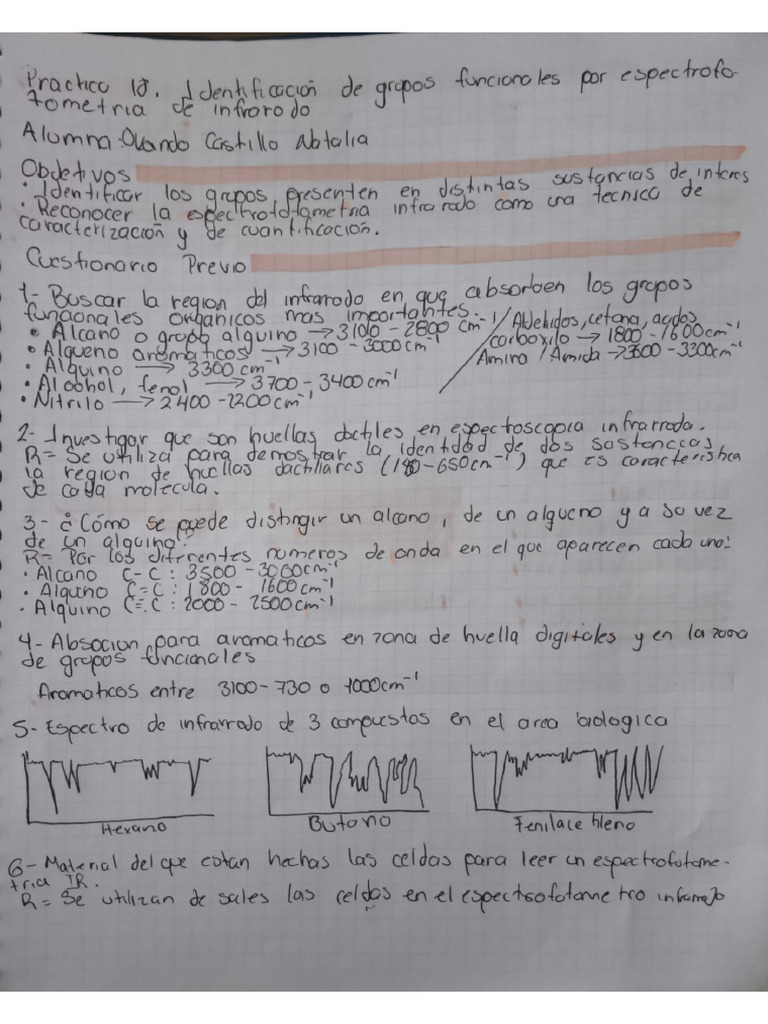 Practica 10. Identificación de grupos funcionales por espectrofo-
tometria de infrarodo
Alumna: Ovando Castillo Natalia
Objetivos
• Identificar los grupos presenten en distintas sustancias de interes
• Reconocer la espectrofotametria infrarrodo como una tecnica de
caracterización y de cuantificación.
Cuestionario Previo
1- Buscar la region del infrarrodo en que absorben los grupos
funcionales organicos mas importantes.
• Alcano o grupo alquino → 3100 - 2800 cm-1
• Alqueno aromaticos → 3100 - 3000 cm-1
• Alquino → 3300 cm-1
• Alcohol, fenol → 3700 - 3400 cm-1
• Nitrilo → 2400 - 2200 cm-1
Aldehidos, cetona, acidos
carboxilo → 1800 - 1600 cm-1
Amino / Amida → 3500 - 3300 cm-1
2- Investigar que son huellas dactiles en espectroscopia infrarroda.
R= Se utiliza para demostrar la identidad de dos sustancias,
la region de huellas dactilares ( - 650 cm-1) que es caracteristica
de cada molecula.
3- ¿Cómo se puede distingir un alcano, de un alqueno y a su vez
de un alquino?
R= Por los diferentes numeros de onda en el que aparecen cada uno:
• Alcano C-C : 3500 - 3000 cm-1
• Alquno C=C : 1800 - 1600 cm-1
• Alquino C≡C : 2000 - 2500 cm-1
4- Absocion para aromaticos en zona de huella digitales y en la zona
de grupos funcionales
Aromaticos entre 3100 - 730 o 1000 cm-1
5- Espectro de infrarrodo de 3 compuestos en el area biologica
Hexano
Butano
Fenilacetileno
6- Material del que estan hechas las celdas para leer un espectrofotome-
tria IR.
R= Se utilizan de sales las celdas en el espectrofotometro